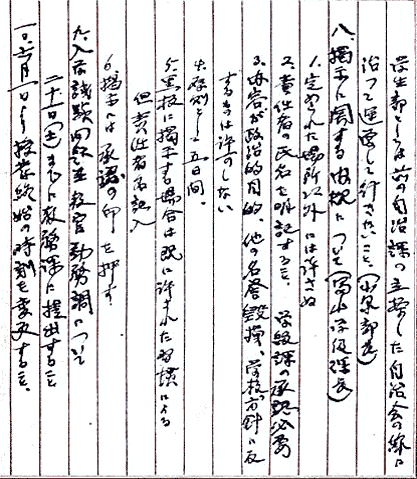 学生部としては前の自治課の主葬した自治会の線に
沿つて運営して行きたいこと、(小泉部長)
八、掲示に関する件について(富山学級課長)
1、定められた場所以外には許さぬ
2、責任者の氏名を明記すること、学級課の承認必要
3、内容が政治的目的、他の名誉毀損、学校方針に反
するものは許可しない
4、原則として五日間、
5、黒板に掲示する場合は既に許された習慣による
但責任者名記入
6、掲示には承認の印を押す、
九、入学試験問題並教官勤務調について
二十一日(土)までに教務課に提出すること
一〇、二月一日より授業終始の時刻を変更すること、